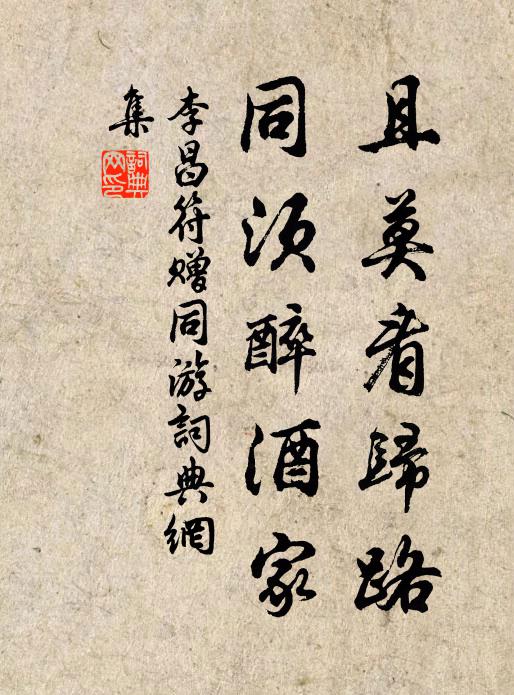 且莫看歸路
同須醉酒家
李昌符贈同游詞典網
集
詞典
网印